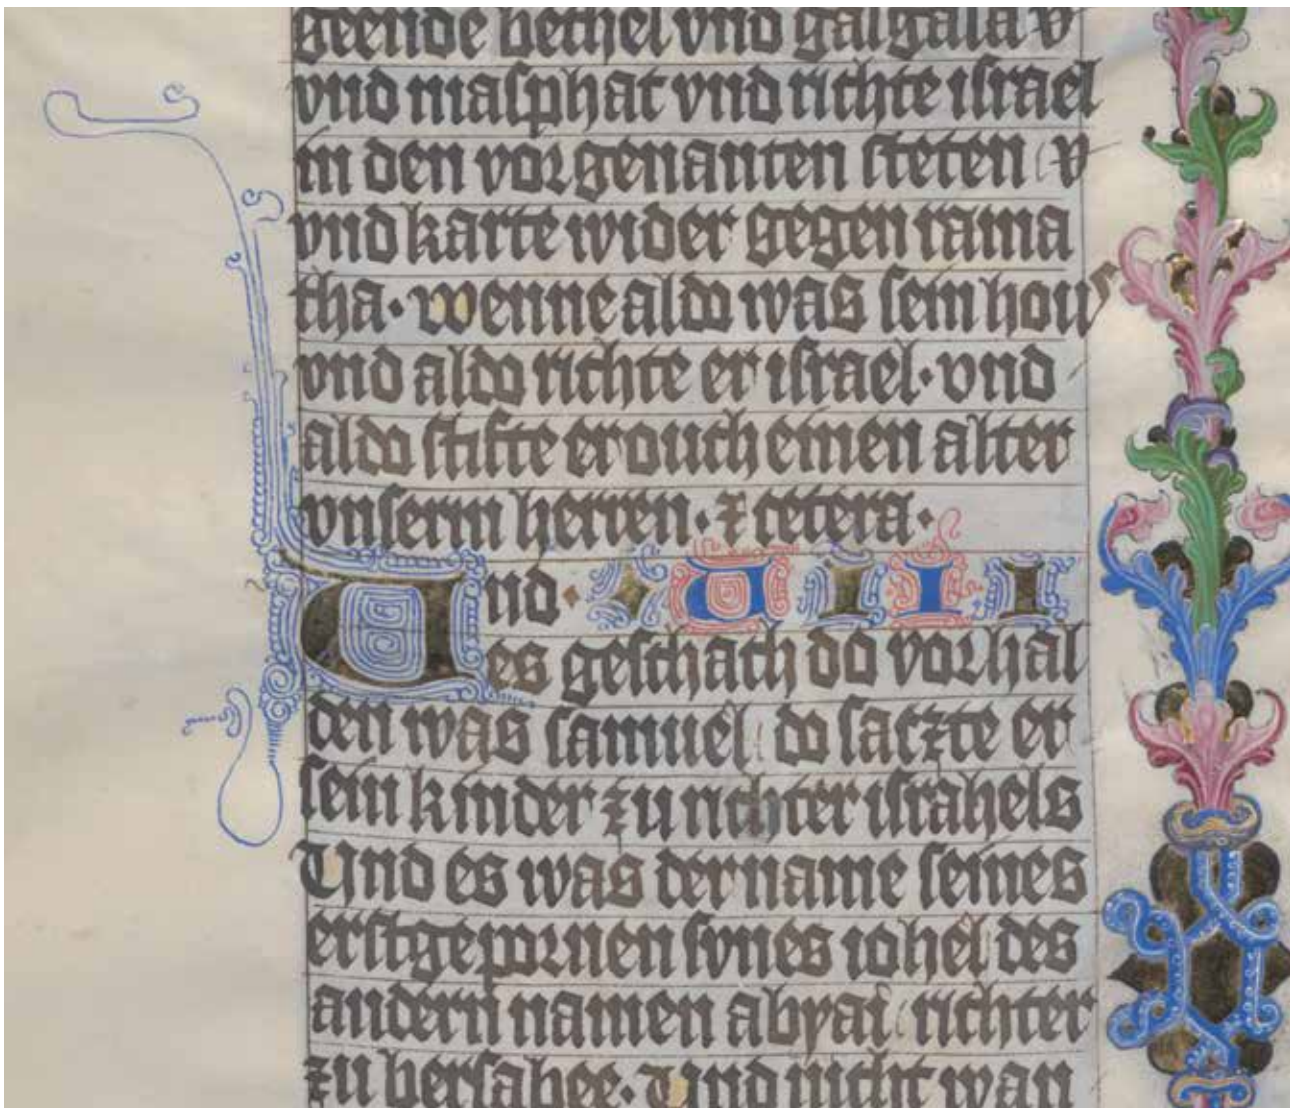 geende bethel vnd galgala v
vnd masphat vnd richte israel
in den vorgenanten steten v
vnd karte wider gegen rama
tha· wenne aldo was sein hous
vnd aldo richte er israel· vnd
aldo stifte er ouch einen alter
vnserm herren· ⁊ cetera·
Und· · VIII
es geschach do voralt
den was samuel do saczte er
sein kinder zu richter israhels
Und es was der name seines
erstgepornen synes iohel des
andern namen abyai richter
zu bersabee· Und nicht wan